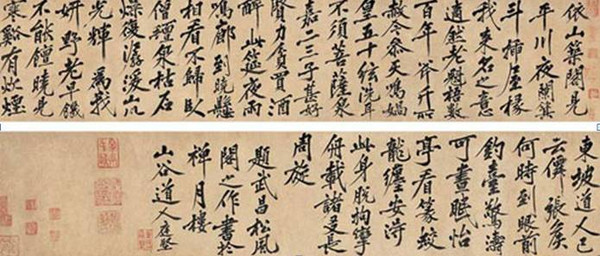 依山築閣見
平川夜闌箕
斗插屋椽
我來名之意
適然老魁梧數
百年斧斤所
赦今參天鳴媧
皇五十弦洗耳
不須菩薩泉
嘉二三子甚好
賢力貧買酒
醉此筵夜雨
鳴廊到曉懸
相看不歸臥
僧氈泉枯石
燥復潺湲山川
光輝為我
妍野老早饑
不能饘曉見
寒谿有炊煙
東坡道人已
張矦
何時到眼前
釣臺驚濤
可畫怡
亭看篆蛟
龍纏安
此身脫拘攣
舟載諸長
周旋
題武昌松風
閣之作書於
禅月樓
山谷道人庭堅